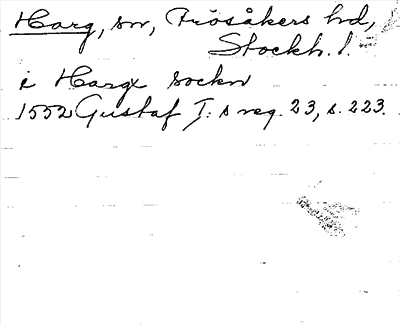 Harg, sn, Frösåkers hd,
Stockh. l.
i Hargx sockn
1552 Gustaf I:s reg. 23, s. 223.